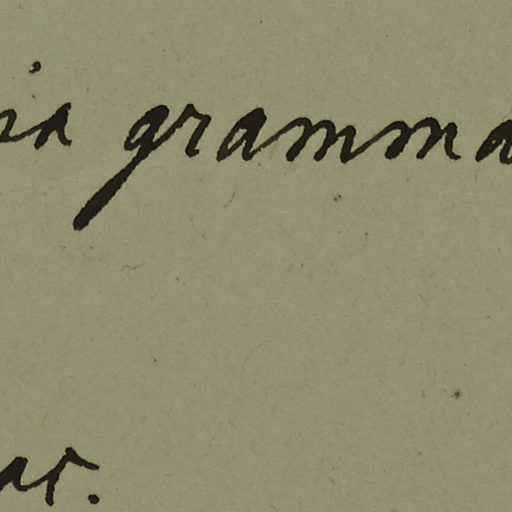 ia gramma
ar.